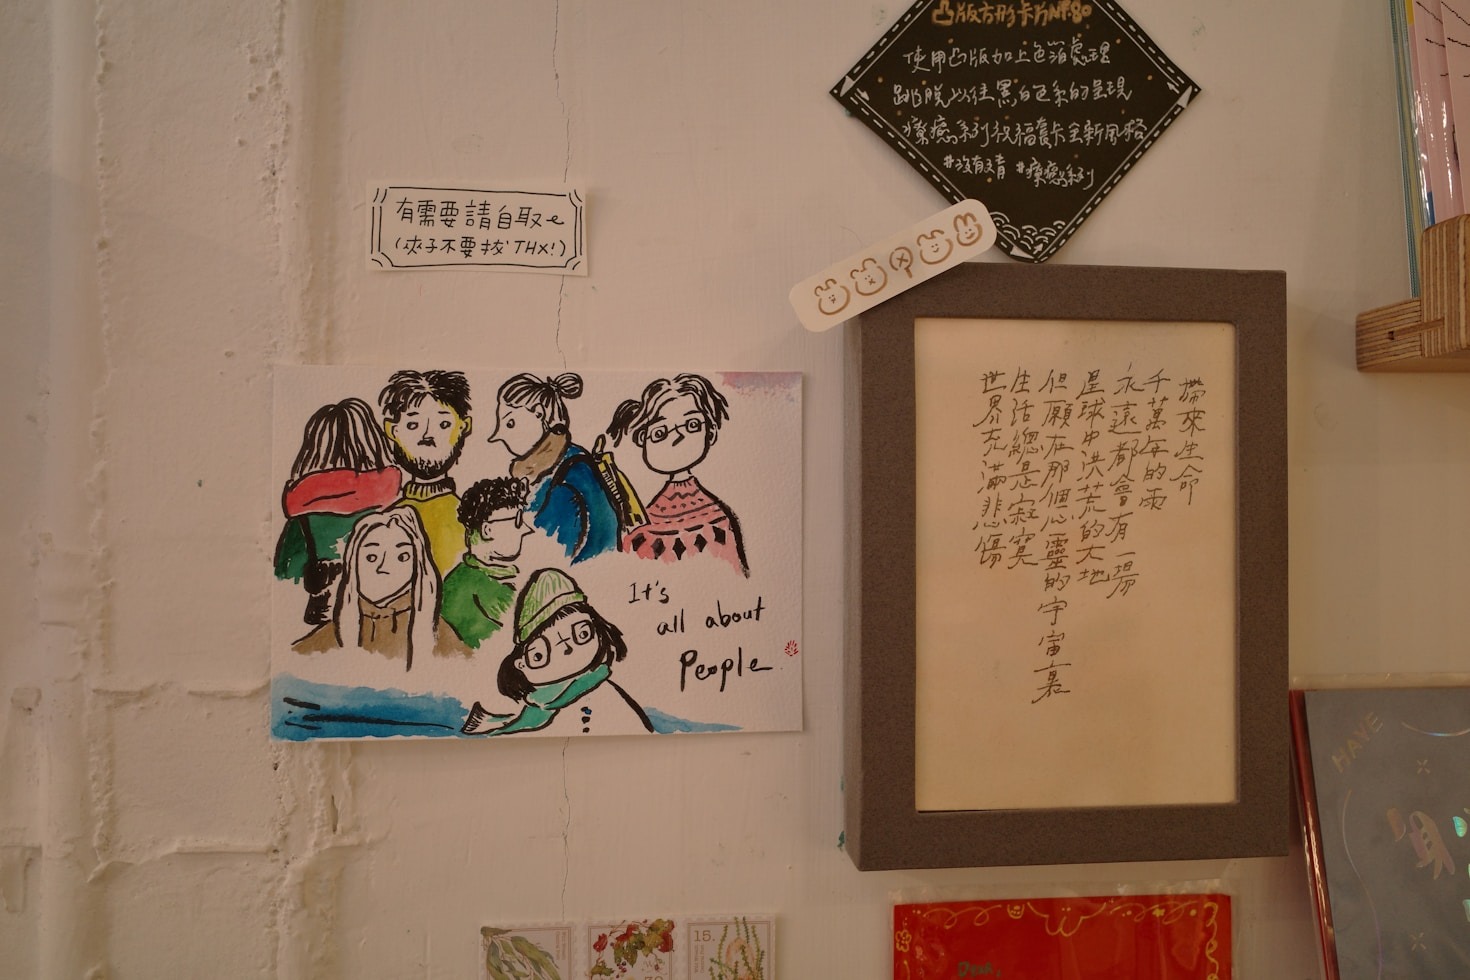 凸版方形卡片NT.80
使用凸版加上色箔處理
跳脫以往黑白色系的呈現
療癒系列祝福套卡全新風格
#療癒系列
有需要請自取~
(夾子不要拔 THX!)
It's
all about
People
世界充滿悲傷
生活總是寂寞
但願在那個心靈的宇宙裏
星球中洪荒的大地
永遠都會有一場
千萬年的雨
帶來生命
HAVE
15.
Dear,